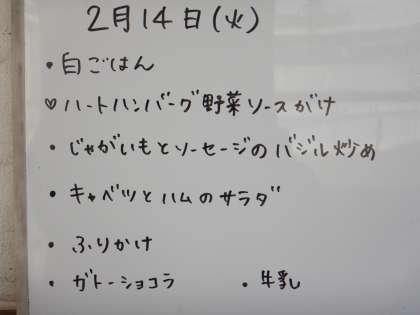 2月14日(火)
・白ごはん
♡ハートハンバーグ野菜ソースがけ
・じゃがいもとソーセージのバジル炒め
・キャベツとハムのサラダ
・ふりかけ
・ガトーショコラ ・牛乳